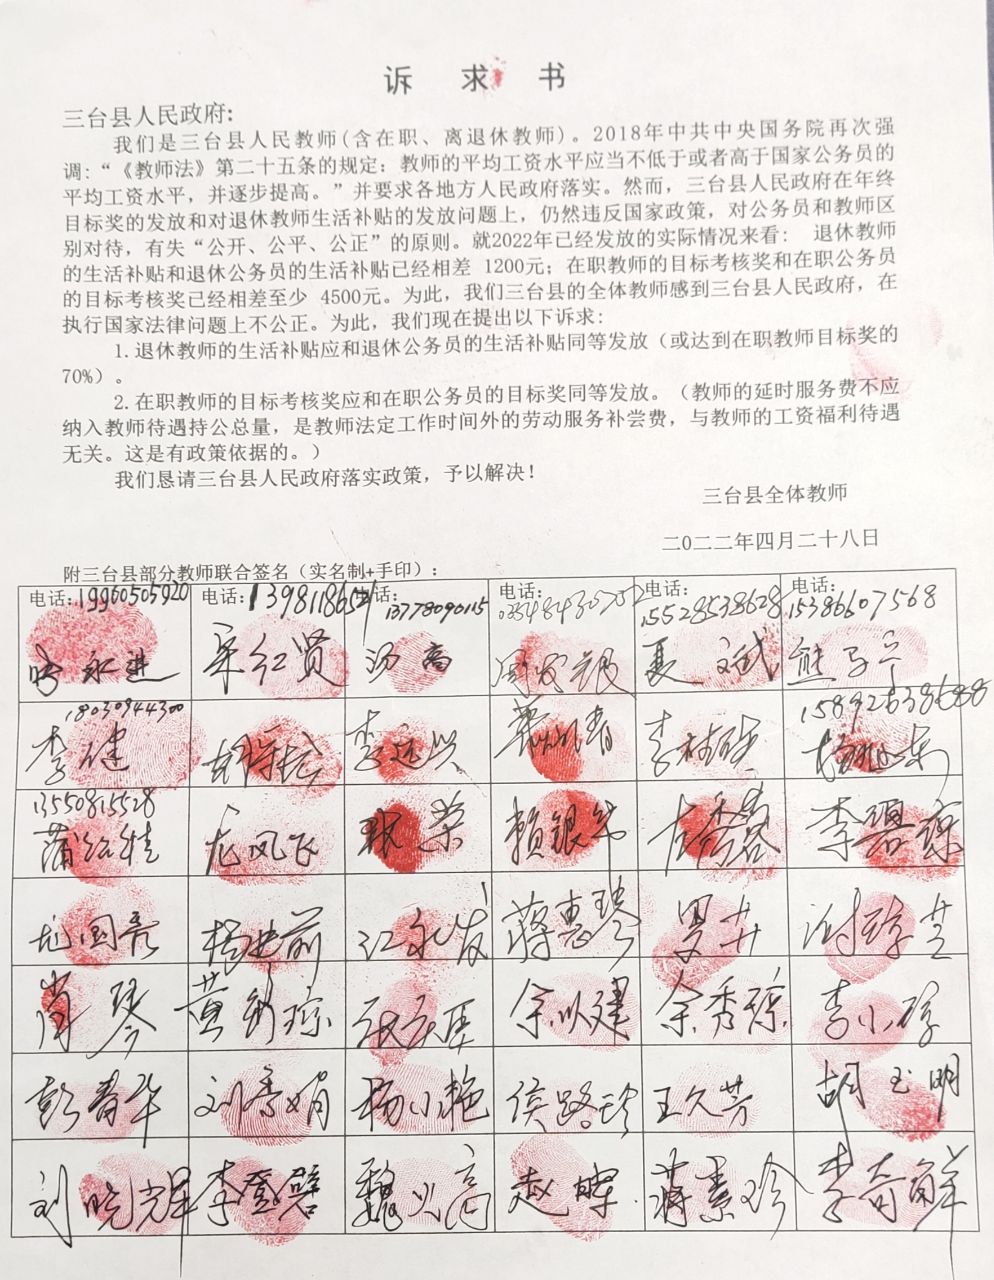 诉 求 书
三台县人民政府:
我们是三台县人民教师(含在职、离退休教师)。2018年中共中央国务院再次强
调:“《教师法》第二十五条的规定:教师的平均工资水平应当不低于或者高于国家公务员的
平均工资水平,并逐步提高。”并要求各地方人民政府落实。然而,三台县人民政府在年终
目标奖的发放和对退休教师生活补贴的发放问题上,仍然违反国家政策,对公务员和教师区
别对待,有失“公开、公平、公正”的原则。就2022年已经发放的实际情况来看: 退休教师
的生活补贴和退休公务员的生活补贴已经相差 1200元;在职教师的目标考核奖和在职公务员
的目标考核奖已经相差至少 4500元。为此,我们三台县的全体教师感到三台县人民政府,在
执行国家法律问题上不公正。为此,我们现在提出以下诉求:
1.退休教师的生活补贴应和退休公务员的生活补贴同等发放(或达到在职教师目标奖的
70%)。
2.在职教师的目标考核奖应和在职公务员的目标奖同等发放。(教师的延时服务费不应
纳入教师待遇持公总量,是教师法定工作时间外的劳动服务补尝费,与教师的工资福利待遇
无关。这是有政策依据的。)
我们恳请三台县人民政府落实政策,予以解决!
三台县全体教师
二〇二二年四月二十八日
附三台县部分教师联合签名(实名制+手印):
电话:19960505920 电话: 电话:13778090115 电话: 电话:15528538628 电话:15386607568
永进 宋红贤 汤高 夏文斌 熊子宁
18030944300 15892638688
李健 李远兴 李
13550815528
蒲红桂 龙凤飞 张荣 赖银 李
龙国 杨进前 江永发 蒋惠琴 谢
肖琴 黄 琼 余以建 余秀琼 李小
彭春华 刘秀娟 杨小艳 侯路珍 王久芳 胡玉明
刘晓辉 李登碧 魏兴高 赵晖 蒋素珍 李奇鲜